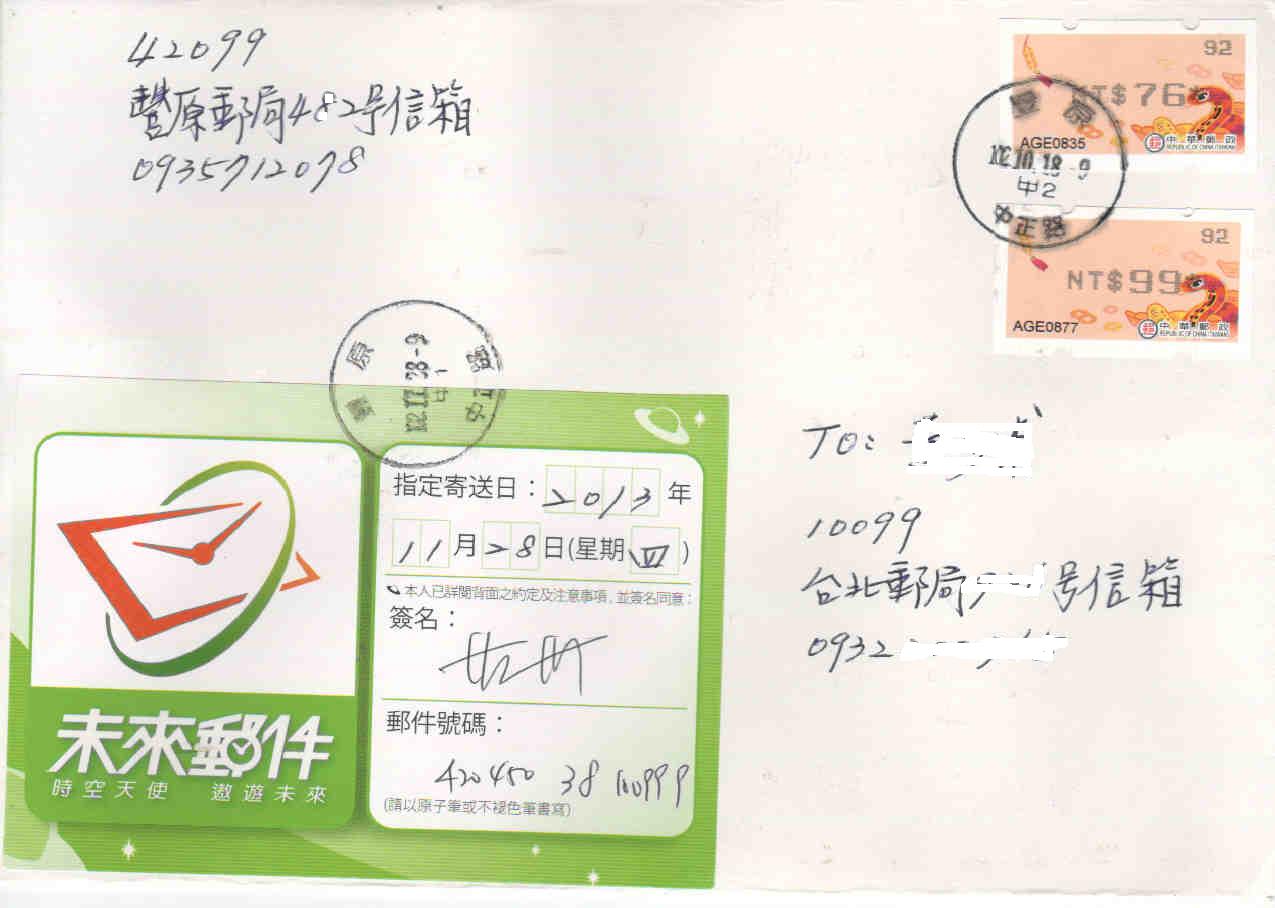 42099
豐原郵局482号信箱
0935712078
92
NT$76*
AGE0835
中華郵政
REPUBLIC OF CHINA (TAIWAN)
豐原
102.10.18-9
中2
中正路
92
NT$99*
AGE0877
中華郵政
REPUBLIC OF CHINA (TAIWAN)
豐原
102.11.28-9
中1
中正路
TO:
10099
台北郵局 号信箱
0932
未來郵件
時空天使 遨遊未來
指定寄送日:2013年
11月28日(星期四)
本人已詳閱背面之約定及注意事項,並簽名同意:
簽名:
郵件號碼:
420450 38 100999
(請以原子筆或不褪色筆書寫)